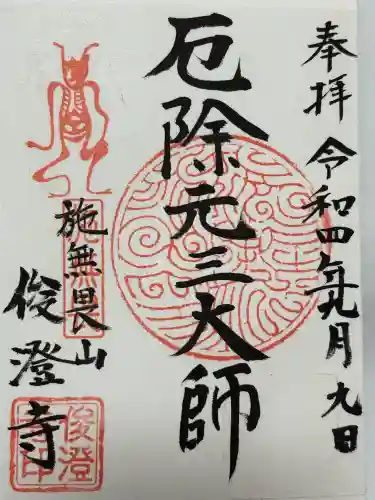 奉拝 令和四年九月九日
厄除元三大師
施無畏山
俊澄寺
俊澄
寺印